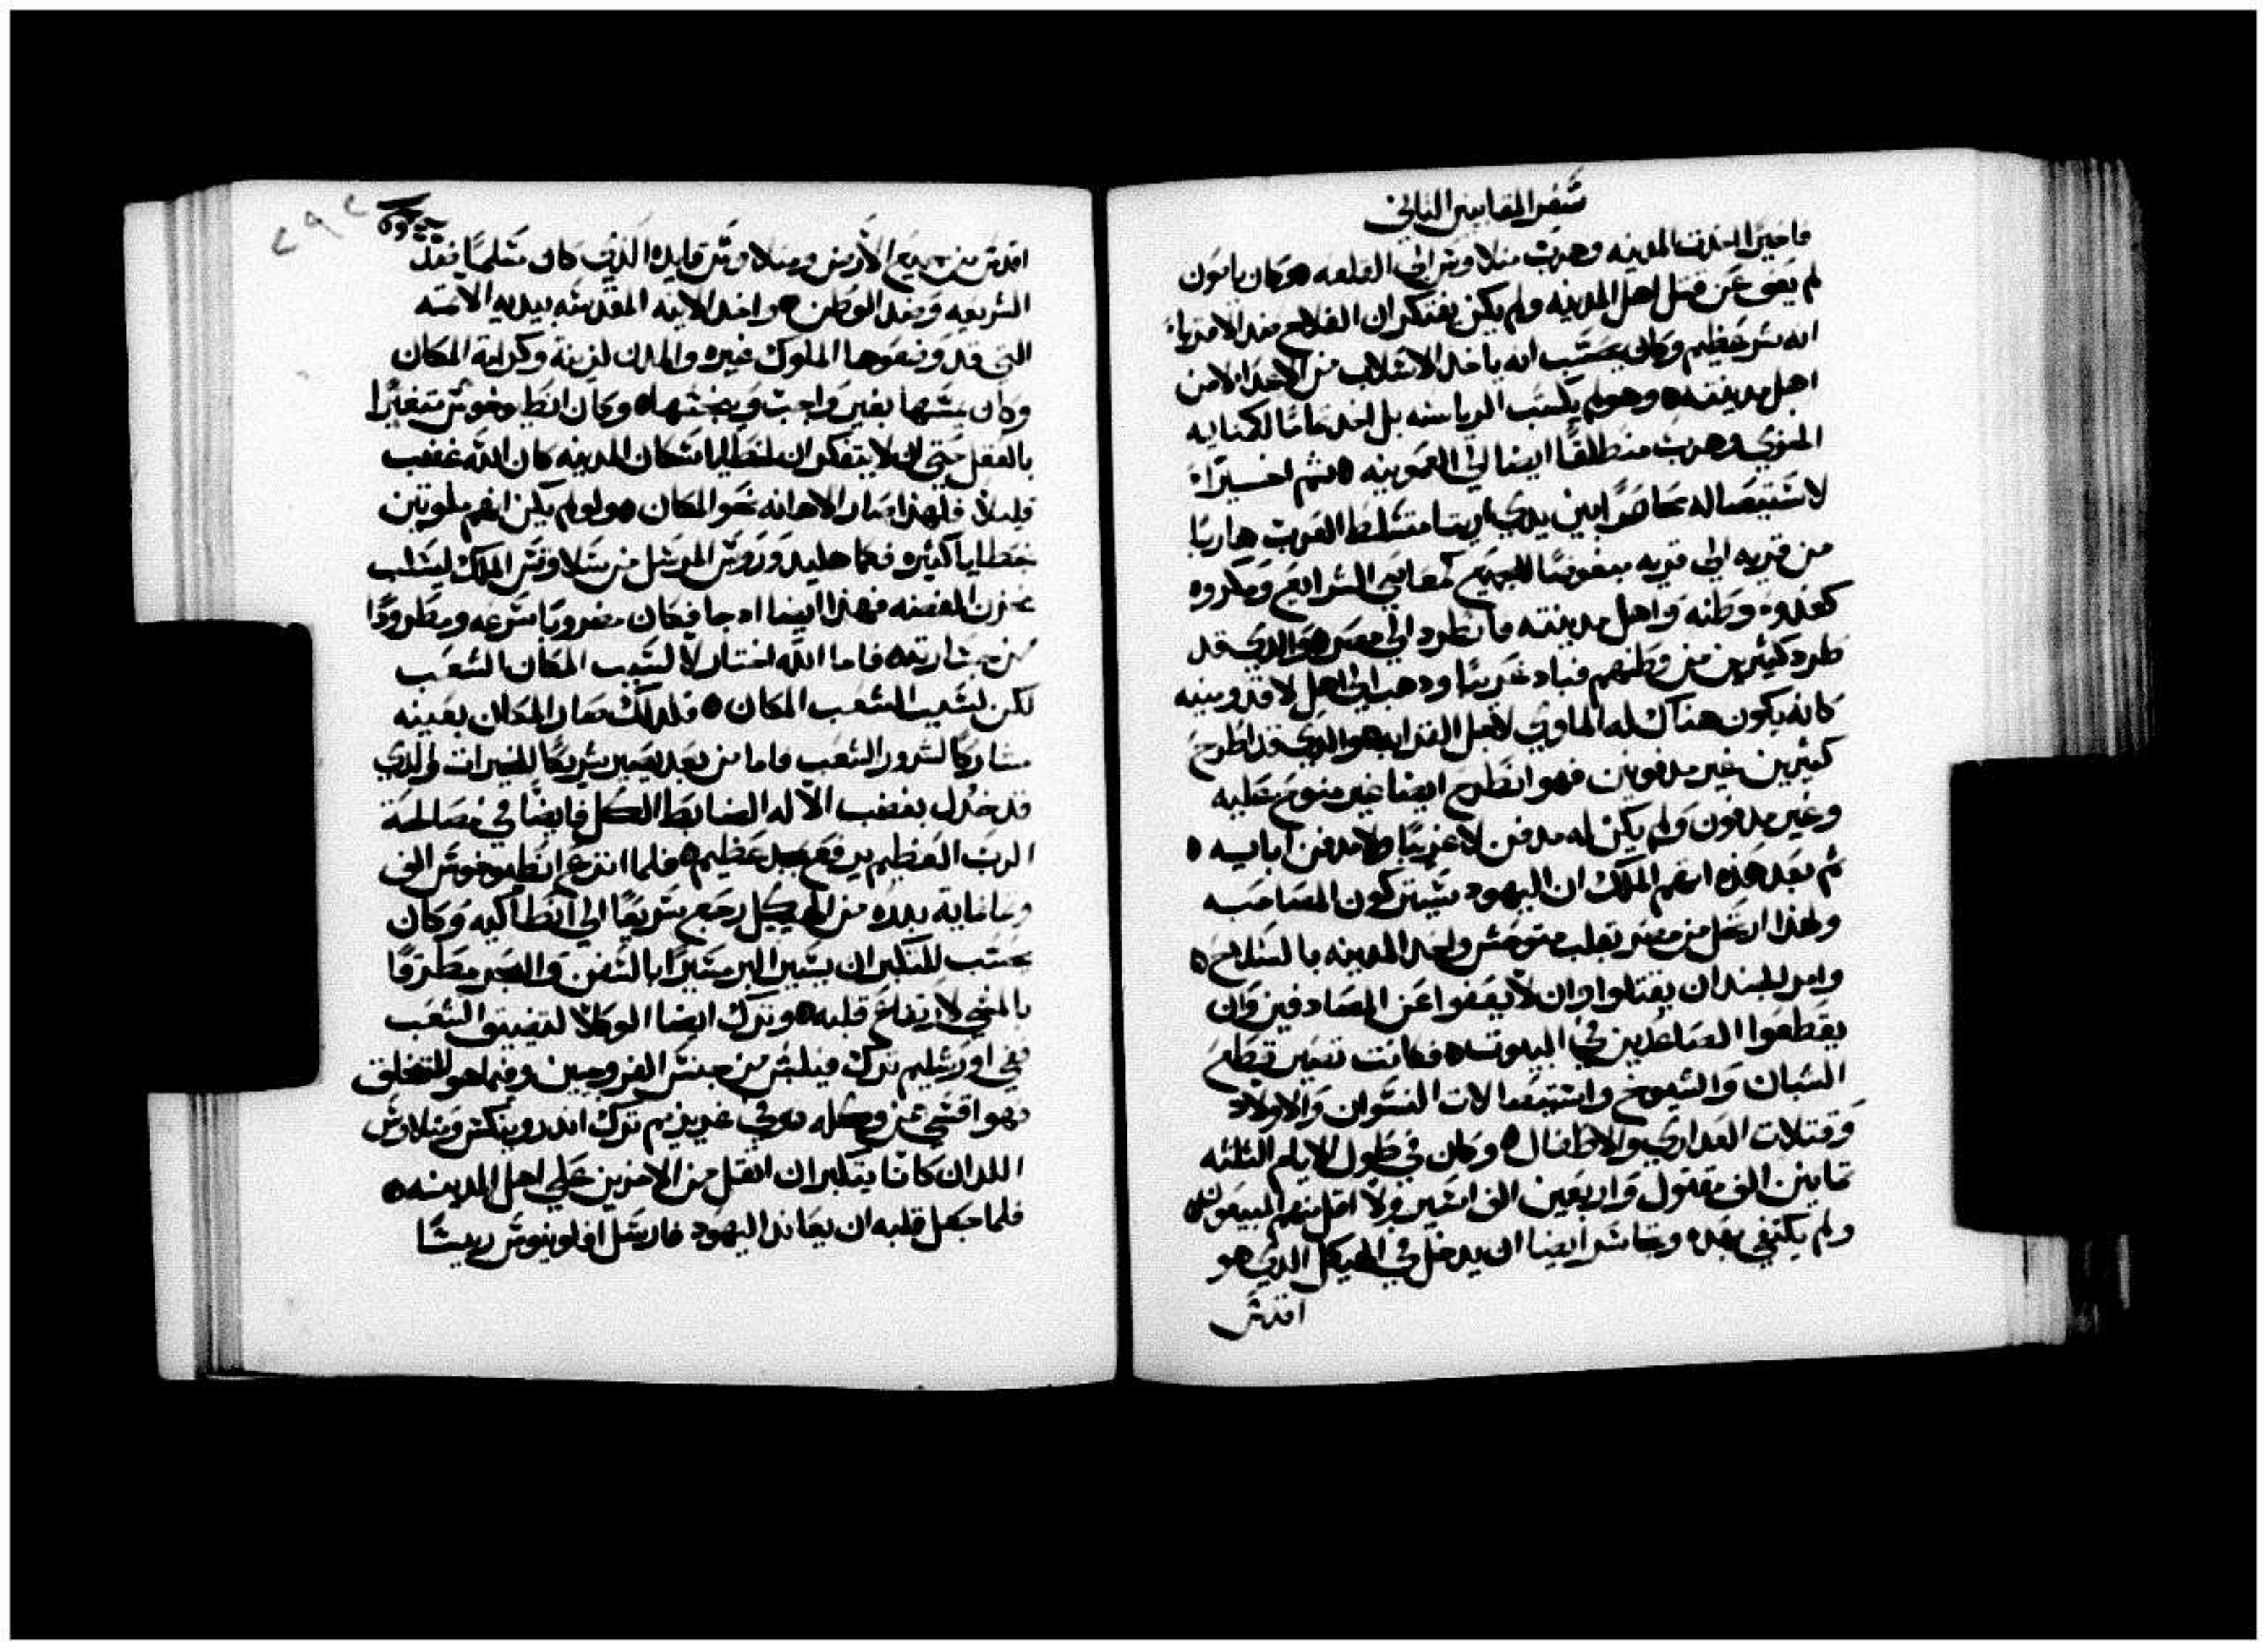 سفر المقابيين الثاني
فاخيرًا اخذت المدينه وهرب منلاوس الي القلعه ٥ وكان ياسون
لم يعفي عن قتل اهل المدينه ولم يكن يفتكر ان الفلاح ضد الاقرباء
انه شر عظيم وكان يحسب انه ياخد الاسلاب من الاعدا لا من
اهل مدينته ٥ وهو لم يكسب الرياسه بل اخد تمامًا لكمنايه
الخزي وهرب منطلقًا ايضا الي العمونيه ٥ ثم اخيرًا
لاستيصاله محاصرًا بين يدي اريتا متسلط العرب هاربًا
من قريه الي قريه مبغوضًا للجميع كمعاقب الشرايع ومكروه
كعدوه وطنه واهل مدينته فانطرد الي مصر ٥ والدي قد
طرد كثيرين من وطنهم فباد غريبًا ودهب الي اهل لاقدونيه
كانه يكون هناك له الماوي لاجل القرابه هو الدي قد اطرح
كثيرين غير مدفونين فهو انطرح ايضا غير منوح عليه
وغير مدفون ولم يكن له مدفن لا غريبًا ولا مدفن ابايه ٥
ثم بعد هذه اتهم الملك ان اليهود سيتركون المصاحبه
ولهذا ارتحل من مصر بقلب متوحش واخد المدينه بالسلاح ٥
وامر الجند ان يقتلوا وان لا يعفوا عن المصادفين وان
يقطعوا الصاعدين في البيوت ٥ فكانت تصير قطع
الشبان والشيوخ واستيصالات النسوان والاولاد
وقتلات العداري والاطفال ٥ وكان في طول الايام الثلثه
ثمانين الف مقتول واربعين الف اسير ولا اقل منهم المبيعون ٥
ولم يكتفي بهده وتجاسر ايضا ان يدخل في الهيكل الدي هو
اقدس
٢٩٢
اقدس من جميع الارض ومنلاوس قايده الذي كان مسلمًا فقد
الشريعه وضد الوطن ٥ واخد الانيه المقدسه بيديه الاثمه
التي قد وضعوها الملوك غيره والمدن لزينة وكرامة المكان
وكان يمسها بغير واجب وينجسها ٥ وكان انطيوخوس متغيرًا
بالعقل حتي انه لا يتفكر ان لخطايا سكان المدينه كان الله غضب
قليلاً فلهذا صار الاهانه نحو المكان ٥ ولو لم يكن انهم ملوتين
بخطايا كثيره فكما هليدوروس المرسل من سلاوقس الملك ليسلب
مخزن الفضه فهذا ايضا اد جا فكان مضروبًا سرعه ومطرودًا
من جسارته ٥ فاما الله اختار لا لسبب المكان الشعب
لكن لسبب الشعب المكان ٥ فلدلك صار المكان بعينه
مشاركًا لشرور الشعب فاما من بعد يصير شريكًا للخيرات والدي
قد خدل بغضب الاله الضابط الكل فايضًا في مصالحة
الرب العظيم يرفع بمجد عظيم ٥ فلما انزع انطيوخوس الف
وثمانماية بدره من الهيكل رجع سريعًا الي انطاكيه وكان
يحسب للتكبر ان يسير البر مسيرًا بالسفن والبحر مطرقًا
بالمشي لارتفاع قلبه ٥ وترك ايضا الوكلا لتضييق الشعب
ففي اورشليم ترك فيلبس من جنس الفروجيين وفيما هو للتخلق
فهو اقسي من وكله ٥ وفي غريزيم ترك اندرونيكس ومنلاوس
اللدان كانا يتكبران اثقل من الاخرين علي اهل المدينه ٥
فلما جعل قلبه ان يعاند اليهود فارسل افلونيوس رييسًا